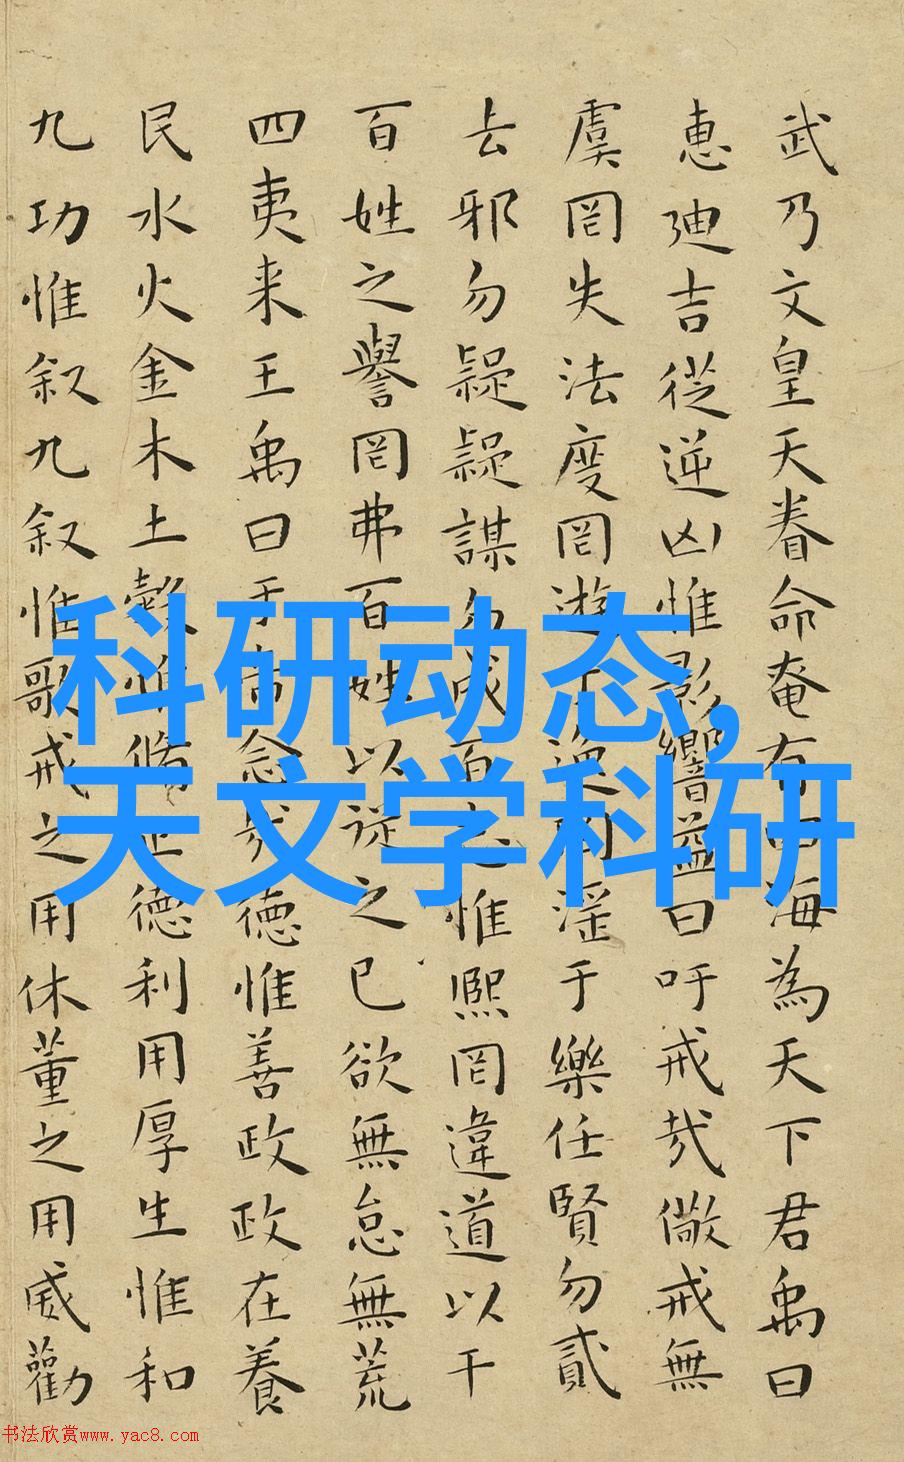 武乃文皇天眷命奄有四海為天下君禹曰
惠廸吉從逆凶惟影響益曰吁戒㢤儆戒無
虞罔失法度罔遊于逸罔淫于樂任賢勿貳
去邪勿疑疑謀勿成百志惟熙罔違道以干
百姓之譽罔弗百姓以從之已欲無怠無荒
四夷来王禹曰于帝念㢤德惟善政政在養
民水火金木土穀惟脩正德利用厚生惟和
九功惟叙九叙惟歌戒之用休董之用威勸
科研动态,
天文学科研
书法欣赏www.yac8.com